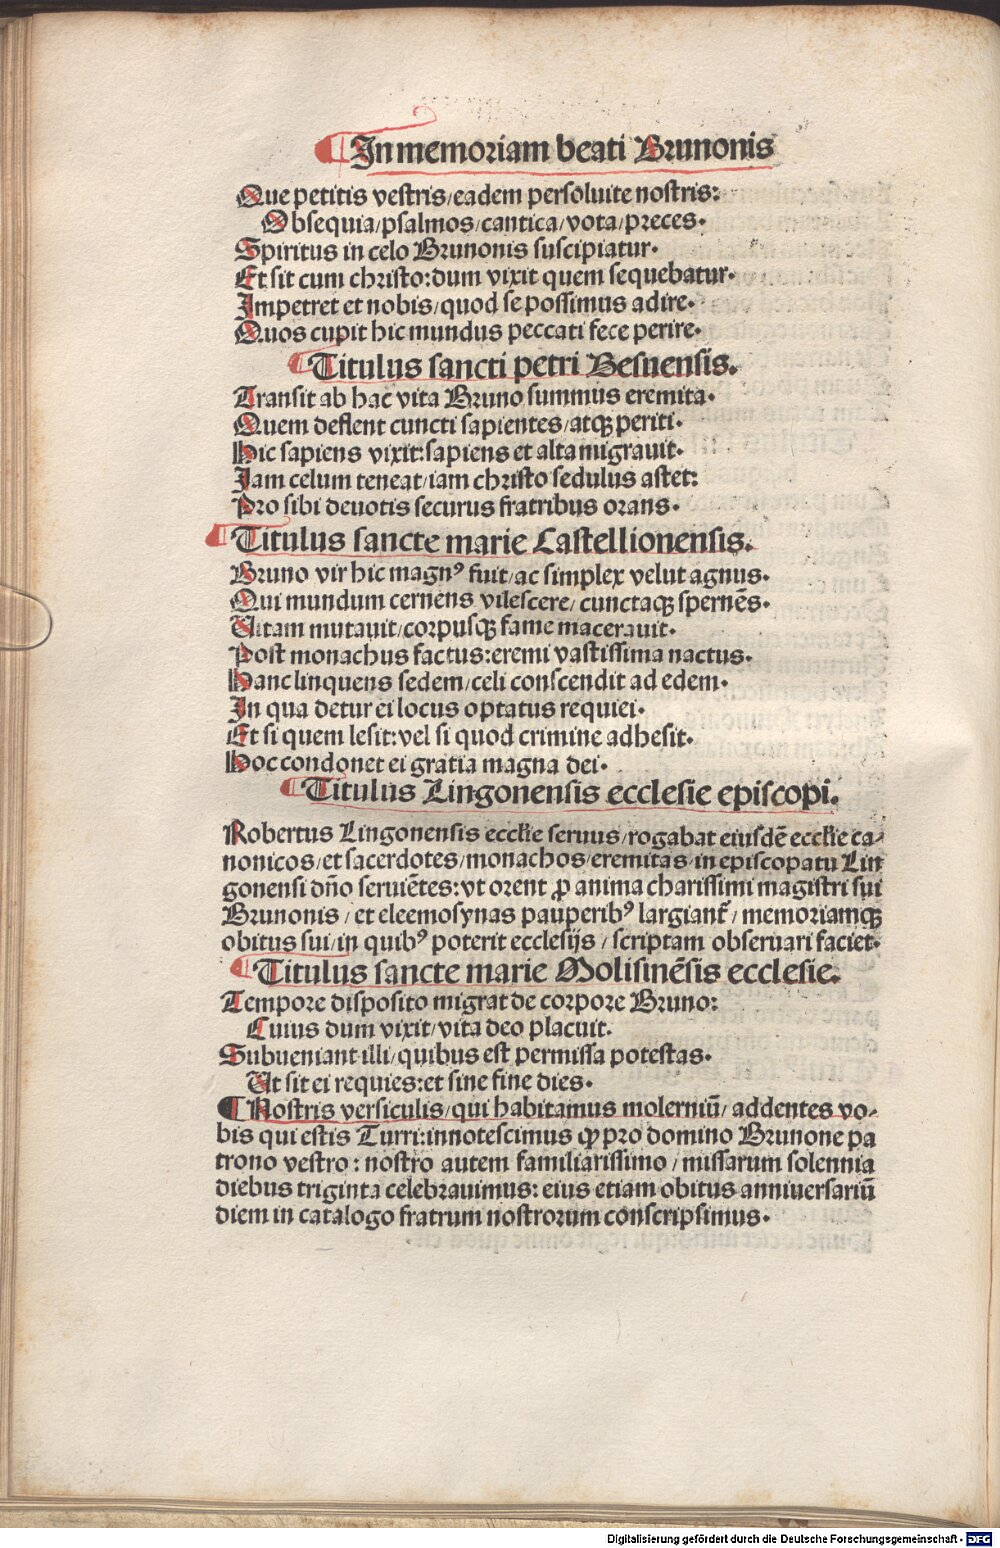 ¶ In memoriam beati Brunonis
Que petitis vestris/eadem persoluite nostris:
Obsequia/psalmos/cantica/vota/preces.
Spiritus in celo Brunonis suscipiatur.
Et sit cum christo:dum vixit quem sequebatur.
Impetret et nobis/quod se possimus adire.
Quos cupit hic mundus peccati fece perire.
¶ Titulus sancti petri Besuensis.
Transit ab hac vita Bruno summus eremita.
Quem deflent cuncti sapientes/atqꝫ periti.
Hic sapiens vixit:sapiens et alta migrauit.
Iam celum teneat/iam christo sedulus astet:
Pro sibi deuotis securus fratribus orans.
¶ Titulus sancte marie Castellionensis.
Bruno vir hic magnꝰ fuit/ac simplex velut agnus.
Qui mundum cernens vilescere/cunctaqꝫ spernēs.
Uitam mutauit/corpusqꝫ fame macerauit.
Post monachus factus:eremi vastissima nactus.
Hanc linquens sedem/celi conscendit ad edem.
In qua detur ei locus optatus requiei.
Et si quem lesit:vel si quod crimine adhesit.
Hoc condonet ei gratia magna dei.
¶ Titulus Lingonensis ecclesie episcopi.
Robertus Lingonensis ecclie seruus/rogabat eiusdē ecclie ca-
nonicos/et sacerdotes/monachos/eremitas in episcopatu Lin
gonensi dño seruiētes:vt orent ꝓ anima charissimi magistri sui
Brunonis/et eleemosynas pauperibꝰ largiant᷑/memoriamqꝫ
obitus sui/in quibꝰ poterit ecclesijs/scriptam obseruari faciet.
¶ Titulus sancte marie Molisinēsis ecclesie.
Tempore disposito migrat de corpore Bruno:
Cuius dum vixit/vita deo placuit.
Subueniant illi/quibus est permissa potestas.
Ut sit ei requies:et sine fine dies.
¶ Nostris versiculis/qui habitamus molerniū/addentes vo-
bis qui estis Turri:innotescimus ꝙ pro domino Brunone pa
trono vestro:nostro autem familiarissimo/missarum solennia
diebus triginta celebrauimus:eius etiam obitus anniuersariū
diem in catalogo fratrum nostrorum conscripsimus.
Digitalisierung gefördert durch die Deutsche Forschungsgemeinschaft - DFG